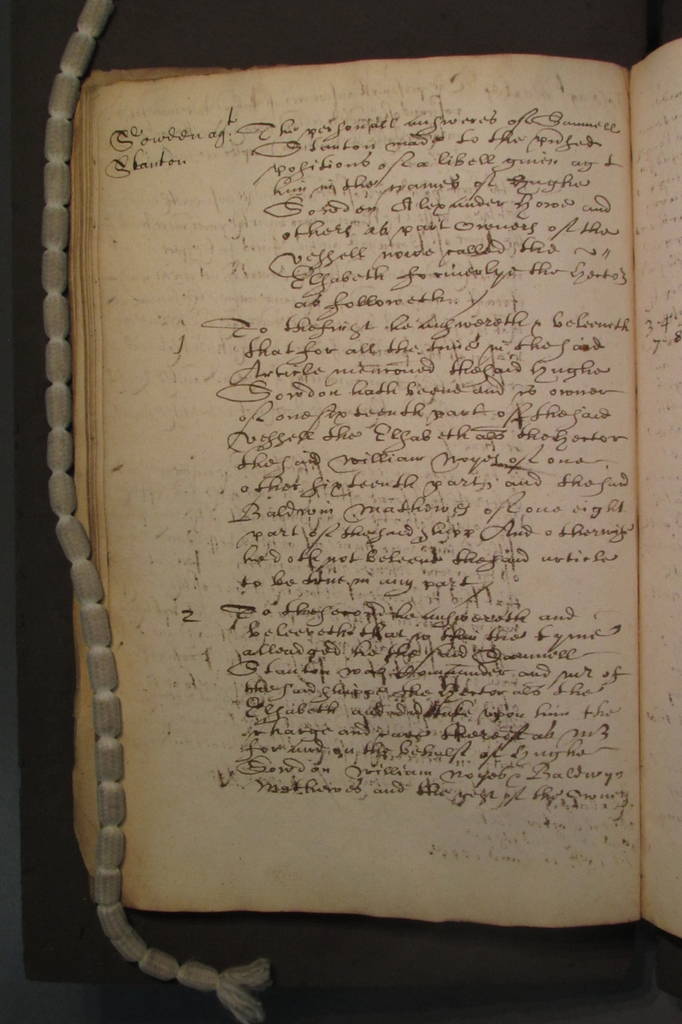 Sowdon agt
Stanton
The personall answeres of Samuell
Stanton made to the p'tended
positions of a libell given agt
him in the names of Hughe
Sowdon Alexander Howe and
others as part owners of the
vessell nowe called the
Elizabeth formerlye the Hector
as followeth
1 To the first he answereth & beleeveth
that for all the time in the said
Article menconed the said Hughe
Sowdon hath beene and is owner
of one sixteenth part of the said
Vessell the Elizabeth als the Hector
the said William Noyes of one
other sixteenth part and the said
Baldwin Mathewes of one eight
part of the said shipp And otherwise
he doth not beleeve the said article
to be true in any part
2 To the second he answereth and
beleeveth that in the tyme
alleadged he the said Samuell
Stanton was Commander and mr of
the said shippe the Hector als the
Elizabeth and did take upon him the
charge and care thereof as mr
for and on the behalf of Hughe
Sowdon William Noyes Baldwyn
Mathewes and the rest of the owners